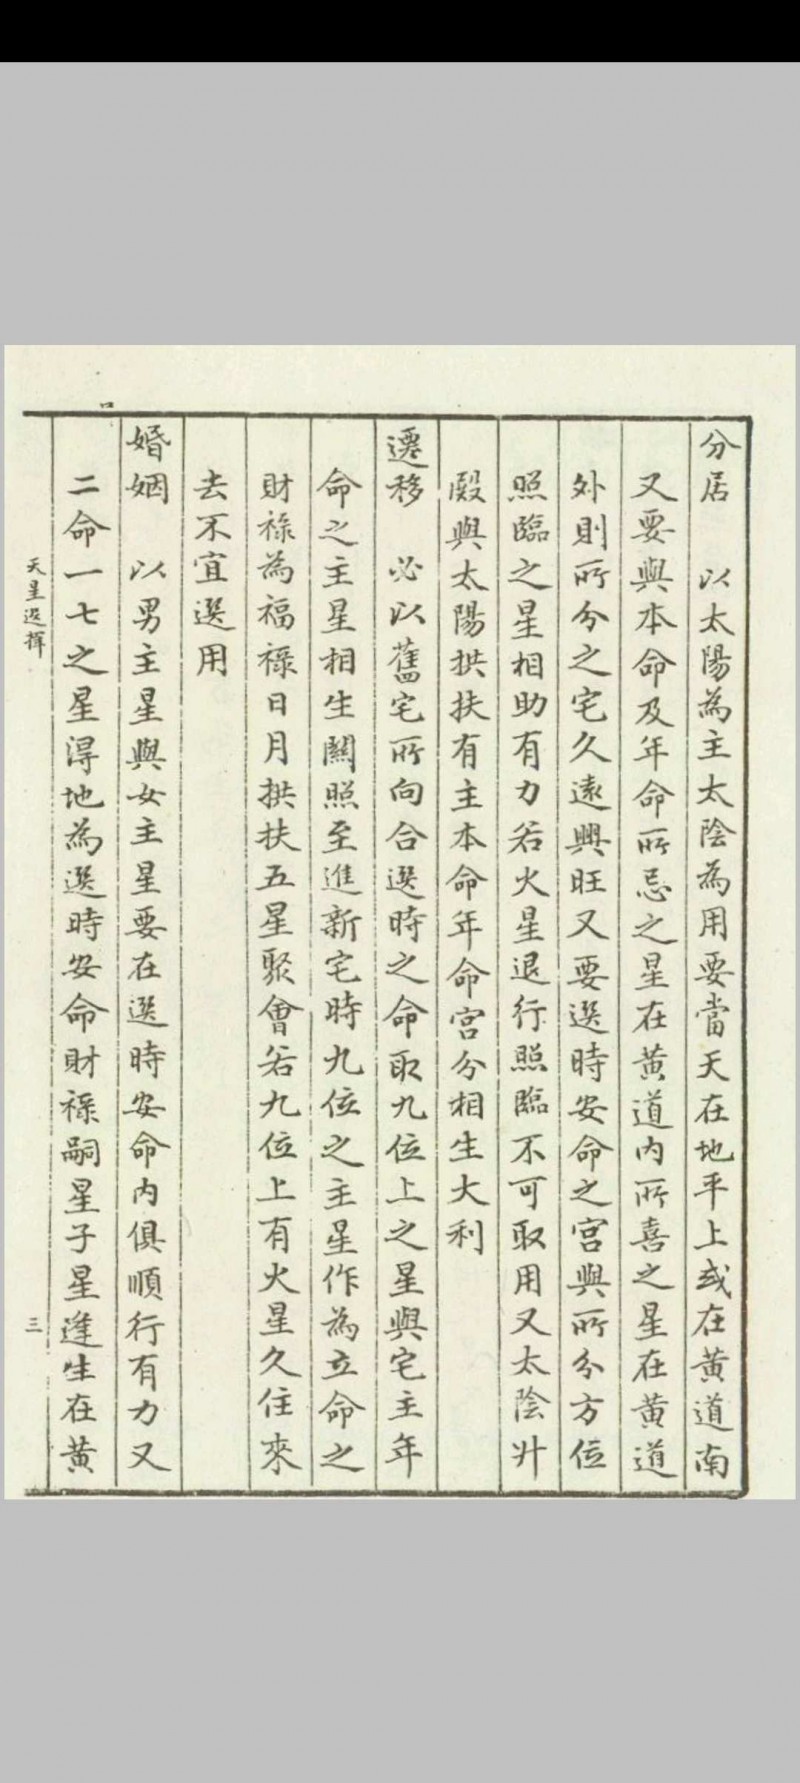 分居　以太陽為主太陰為用要當天在地平上或在黃道南
又要與本命及年命所忌之星在黃道內所喜之星在黃道
外則所分之宅久遠興旺又要選時安命之宮與所分方位
照臨之星相助有力若火星退行照臨不可取用又太陰升
殿與太陽拱扶有主本命年命宮分相生大利
遷移　必以舊宅所向合選時之命取九位上之星與宅主年
命之主星相生關照至進新宅時九位之主星作為立命之
財祿為福祿日月拱扶五星聚會若九位上有火星久住來
去不宜選用
婚姻　以男主星與女主星要在選時安命內俱順行有力又
二命一七之星得地為選時安命財祿嗣星子星逢生在黃
天星选擇
三